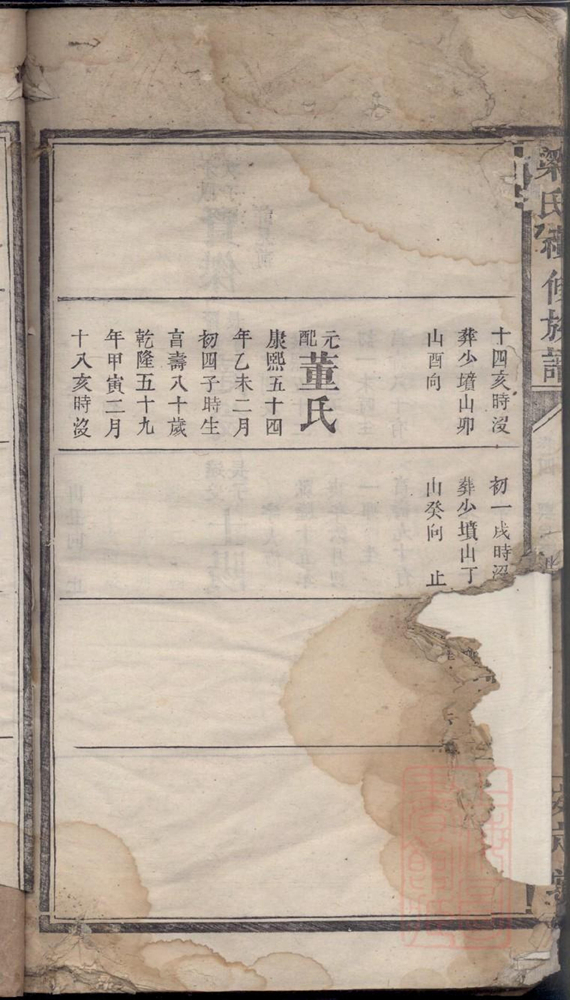 梁氏種修族譜
十四亥時沒
葬少墳山卯
山酉向
元配董氏
康熙五十四
年乙未二月
初四子時生
享壽八十歲
乾隆五十九
年甲寅二月
十八亥時沒
初一戌時沒
葬少墳山丁
山癸向 止